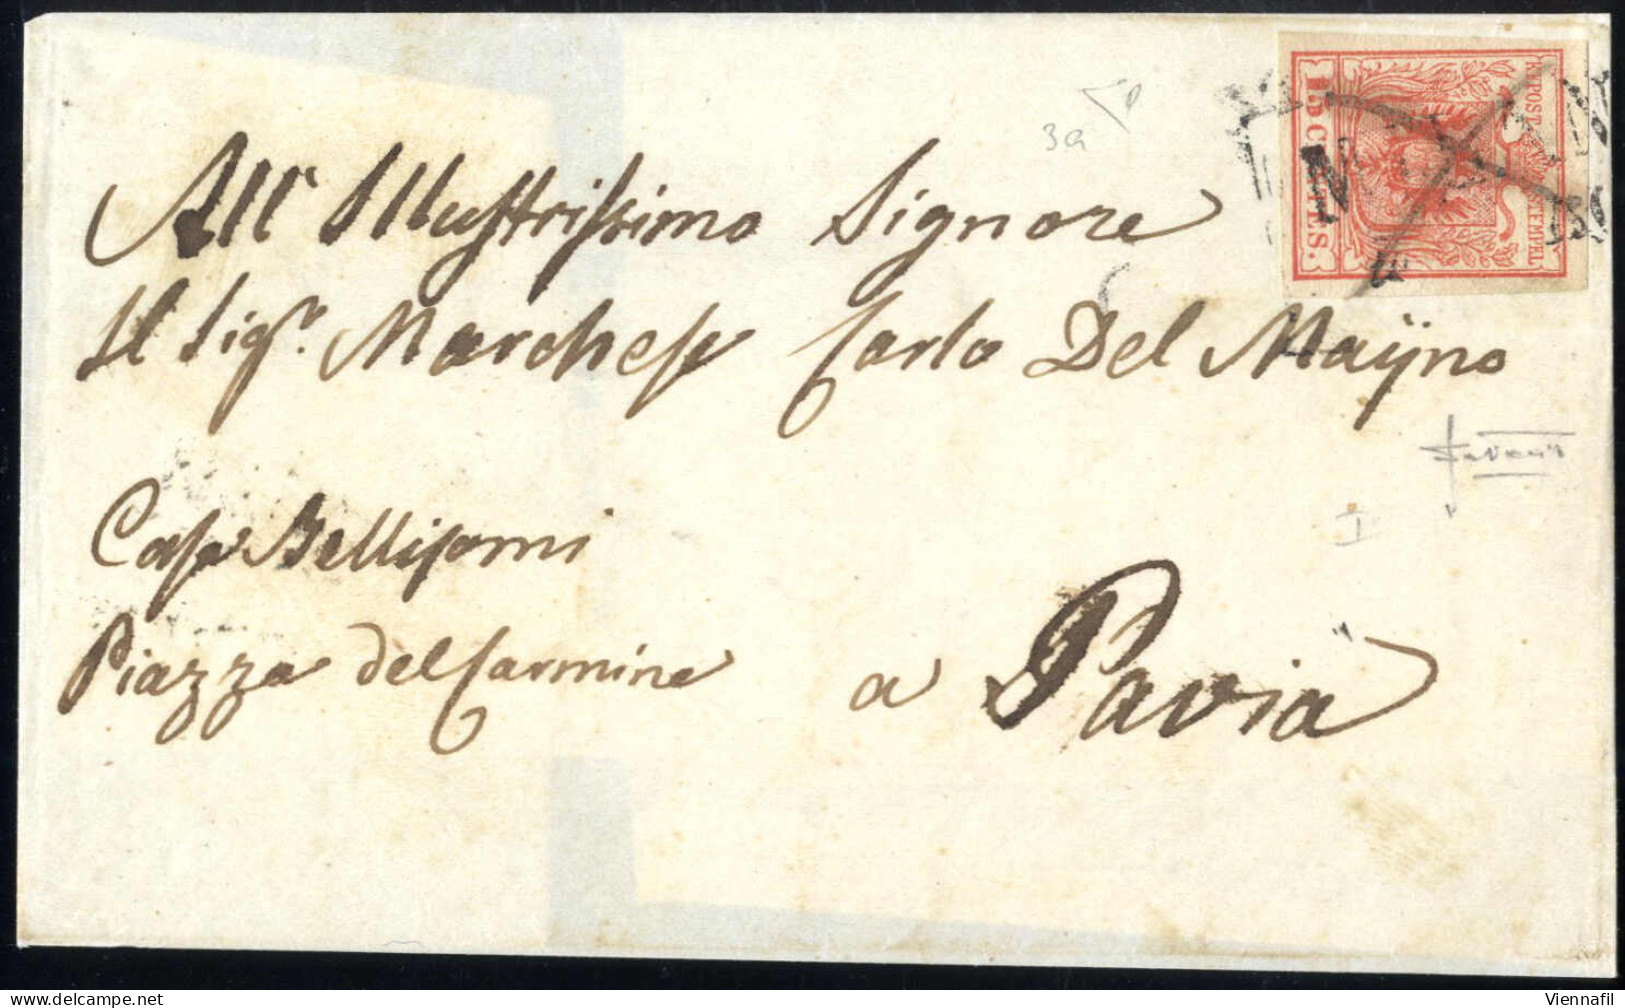 3a
KKPOST STEMPEL
15 CENTES.
N
All' Illustrissimo Signore
Il Sigr. Marchese Carlo Del Maÿno
I
Casa Bellisomi
Piazza del Carmine a Pavia
Viennafil